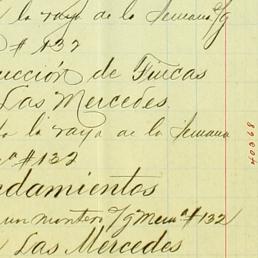 la raya de la Semana s/g
# 132
ucción de Fincas
Las Mercedes
la raya de la Semana
# 132
damientos
un montero s/g Mem^a #132
Las Mercedes
40368